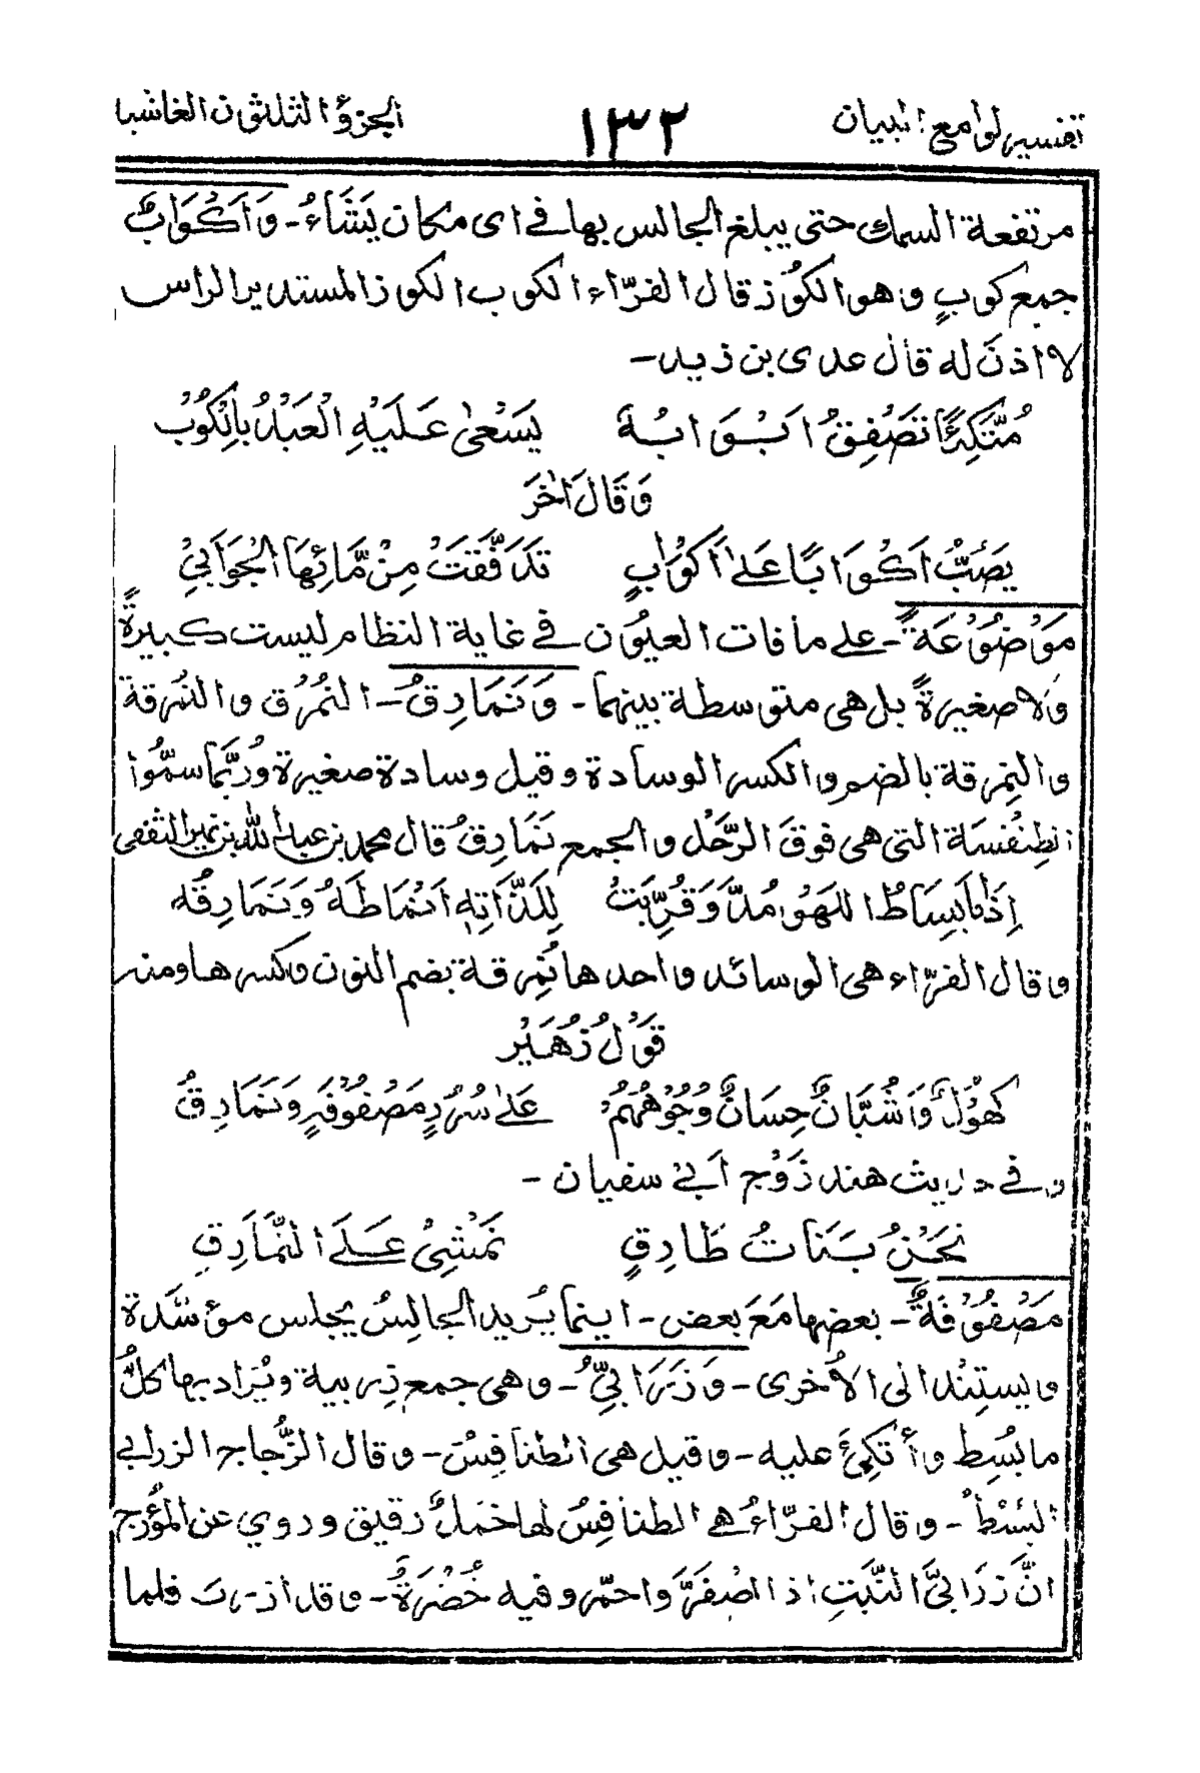 تفسير لوامع البيان ١٣٢ الجزؤ الثلثون الغاشيا
مرتفعة السمك حتى يبلغ الجالس بها في اى مكان يَشَاءُ - وَاَكْوَابٌ
جمع كوبٍ وهو الكوُز قال الفرّاء الكوب الكوز المستدير الراس
لا اذنَ له قال عدى بن زيد -
مُتَّكِئًا تَصْفِقُ اَبْوَابُهٗ يَسْعٰى عَلَيْهِ الْعَبْدُ بِالْكُوْبُ
وَقَالَ اٰخَرَ
يَصُبُّ اَكْوَابًا عَلٰى اَكْوَابٍ تَدَفَّقَتْ مِنْ مَّائِهَا الْجَوَابِيْ
مَوْضُوْعَةٌ - على مافات العيُون في غاية النظام ليست كبيرةً
ولا صغيرةً بل هى متوسطة بينهما - وَنَمَارِقُ - النُمْرُق والنُمرقة
والنِمرقة بالضم والكسر الوسادة وقيل وسادة صغيرة ورُبَّما سمُّوا
الطِنْفسَة التى هى فوقَ الرَّحْل والجمع نَمَارِقُ قال محمد بن عبد الله بن نمير الثقفى
اِذَا بَسَاطُ اللهْوِ مُدَّ وَقُرِّبَتْ لِلَذَّاتِهٖ اَنْمَاطَهُ وَنَمَارِقُه
وقال الفرّاء هى الوسائد واحدها نُمِرقة بضم النون وكسرها ومنه
قَوْلُ زُهَيْر
كُهُوْلٌ وَاَشُبَّانٌ حِسَانٌ وُجُوْهُهُمْ عَلٰى سُرُرٍ مَصْفُوْفَةٍ وَنَمَارِقُ
وفي حديث هند زَوْج اَبي سفيان -
نَحْنُ بَنَاتُ طَارِقٍ نَمْشِىْ عَلَى النَّمَارِقِ
مَصْفُوْفَةٌ - بعضها مَعَ بعض - اينما يُريد الجالِسُ يجلس مؤسَّدة
ويستِنْد الى الاُخرى - وَزَرَابِيُّ - وهى جمع زِربية ويُراد بها كلُّ
ما بُسِط واُتكِئَ عليه - وقيل هى الطنافِسْ - وقال الزُّجاج الزرابي
البُسْطُ - وقال الفرّاءُ هي الطنافِسُ لها خَملٌ رقيق وروي عن المؤَرج
انَّ زرَابيَّ النَّبتِ اذا اصْفَرَّ واحمّر وفيه خُضْرَةٌ - وقد ازربّ فلما